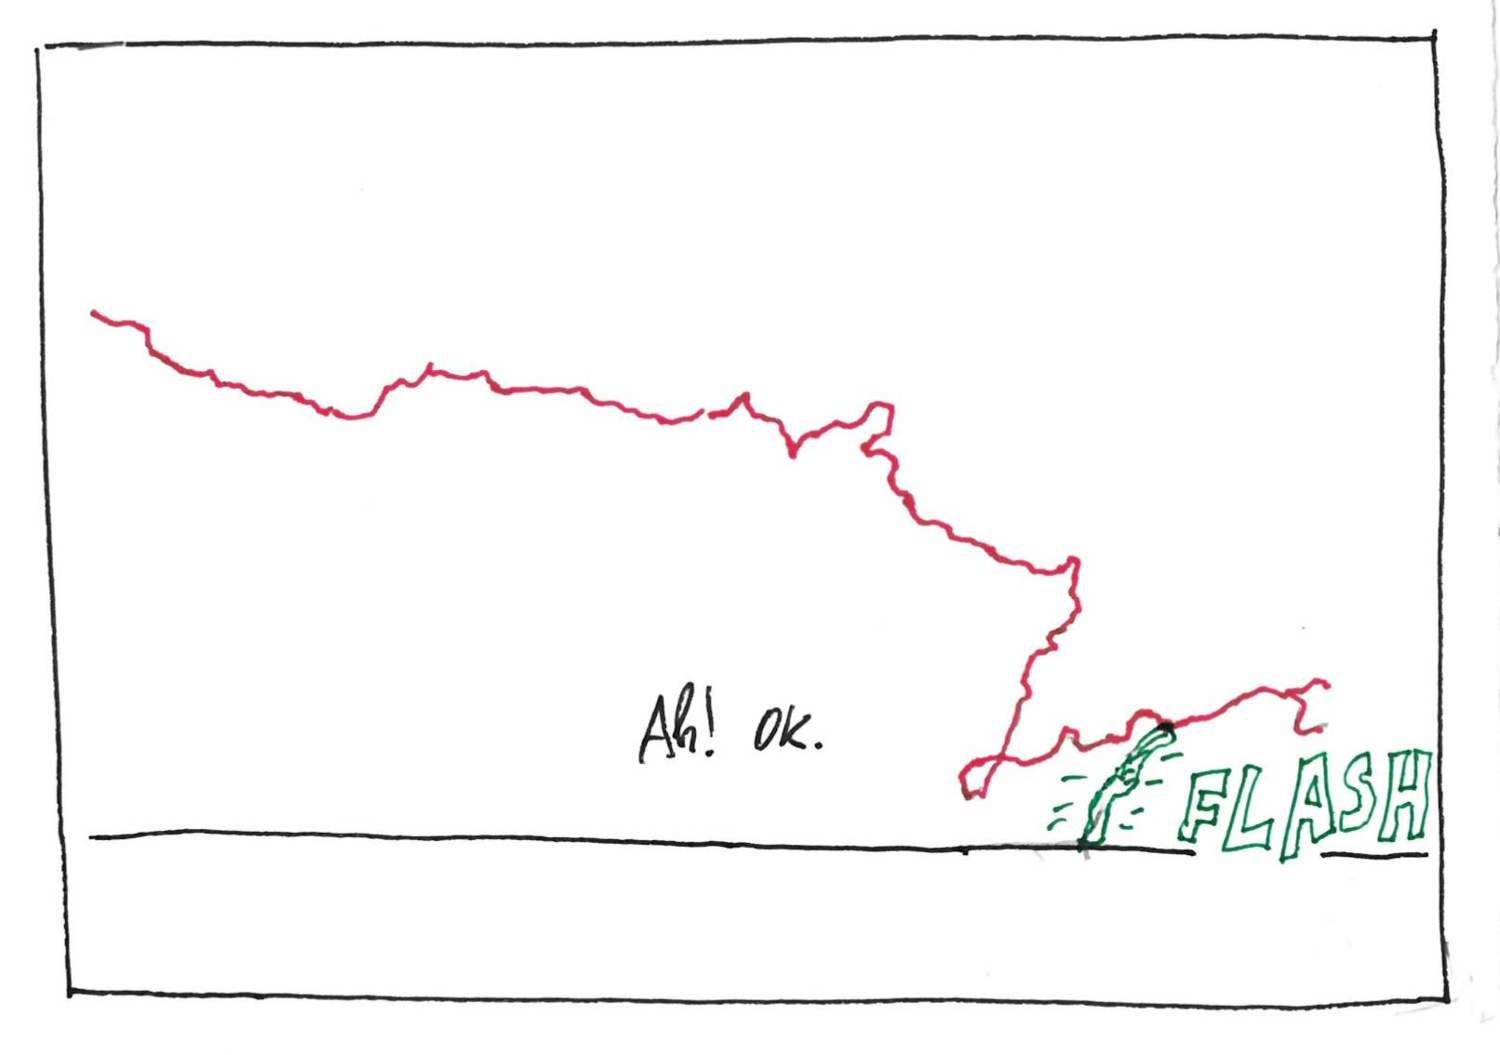 Ah! OK.
FLASH